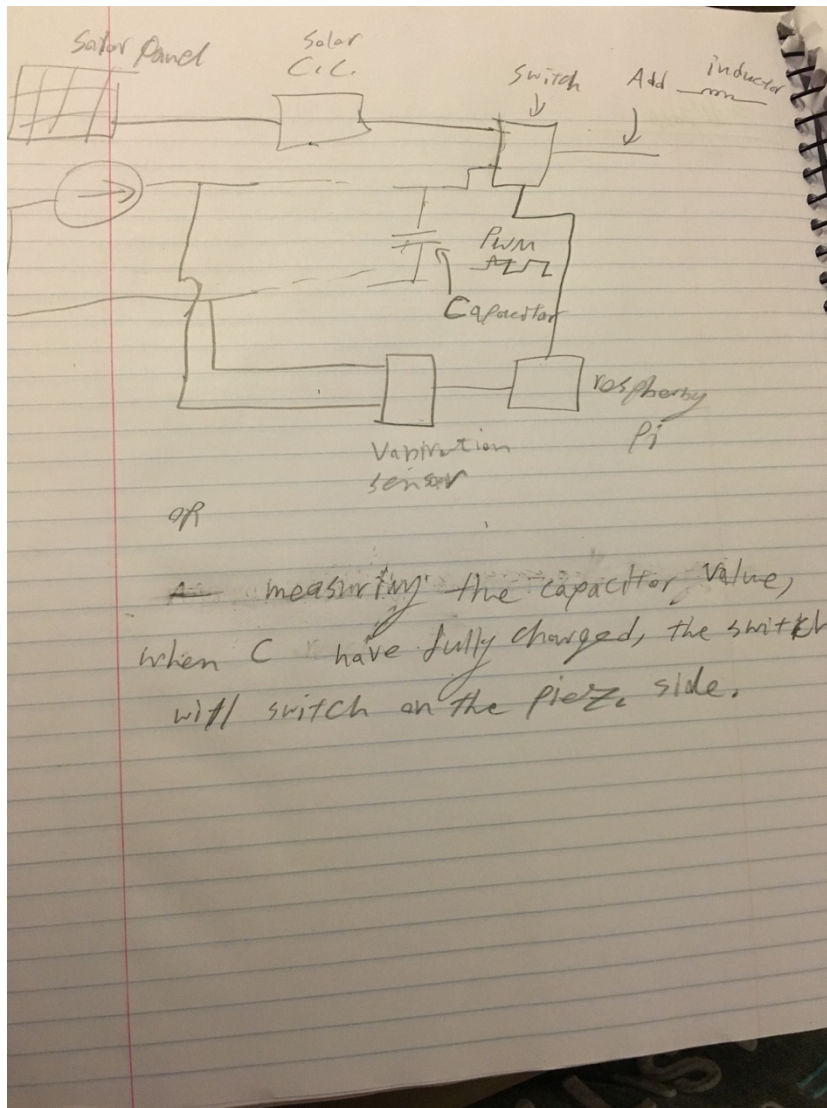 Solar Panel
Solar
C.C.
Switch
Add
inductor
PWM
Capacitor
raspberry
Pi
Vabiration
sensor
OR
measuring the capacitor value,
when C have fully charged, the switch
will switch on the piezo side.